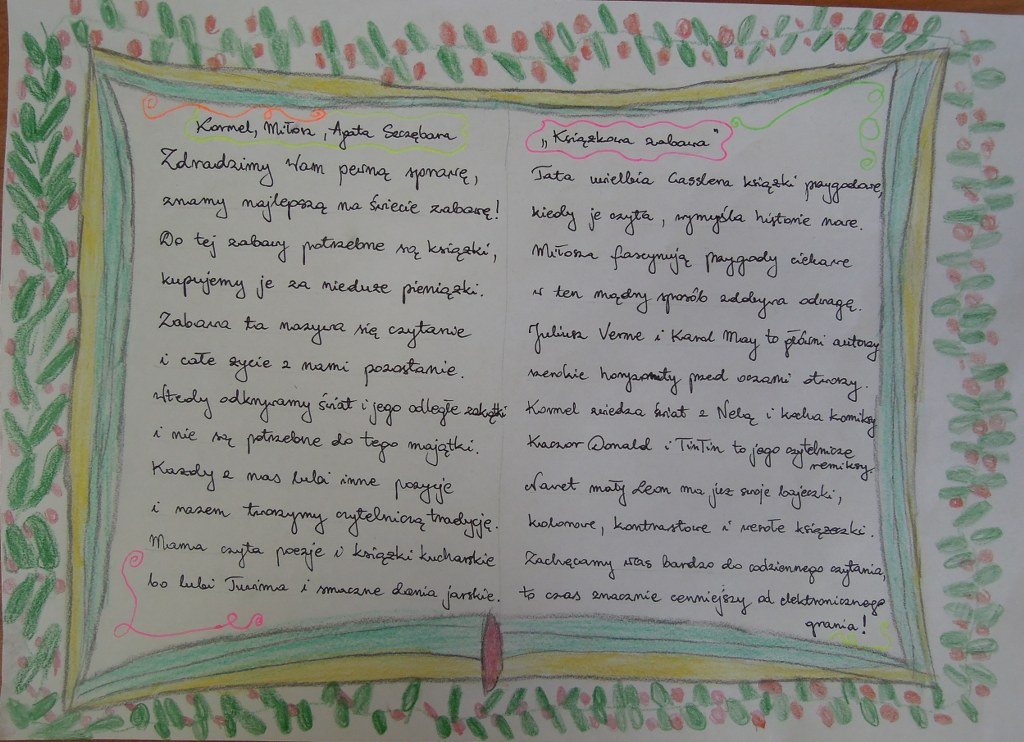 Kornel, Miłosz, Agata Szczębara
Zdradzimy Wam pewną sprawę,
znamy najlepszą na świecie zabawę!
Do tej zabawy potrzebne są książki,
kupujemy je za nieduże pieniążki.
Zabawa ta nazywa się czytanie
i całe życie z nami pozostanie.
Wtedy odkrywamy świat i jego odległe zakątki
i nie są potrzebne do tego majątki.
Każdy z nas lubi inne pozycje
i razem tworzymy czytelniczą tradycję.
Mama czyta poezje i książki kucharskie
bo lubi Tuwima i smaczne dania jarskie.
„Książkowa zabawa"
Tata uwielbia Cusslera książki przygodowe,
kiedy je czyta, wymyśla historie nowe.
Miłosza fascynują przygody ciekawe
w ten mądry sposób zdobywa odwagę.
Juliusz Verne i Karol May to główni autorzy
szerokie horyzonty przed oczami otworzy.
Kornel zwiedza świat z Nelą i kocha komiksy
Kaczor Donald i TinTin to jego czytelnicze
remiksy.
Nawet mały Leon ma już swoje bajeczki,
kolorowe, kontrastowe i wesołe książeczki.
Zachęcamy Was bardzo do codziennego czytania,
to czas znacznie cenniejszy od elektronicznego
grania!